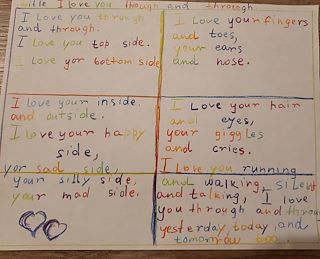 title I love you though and through.
I love you through
and through.
I love you top side.
I love yor bottom side
I love your fingers
and toes,
your ears
and nose.
I love your inside
and outside.
I love your happy
side,
yor sad side,
your silly side,
your mad side.
I Love your hair
and eyes,
your giggles
and cries.
I love you running
and walking, silent
and talking, I love
you through and throu
yesterday, today, and
tomorrow too.